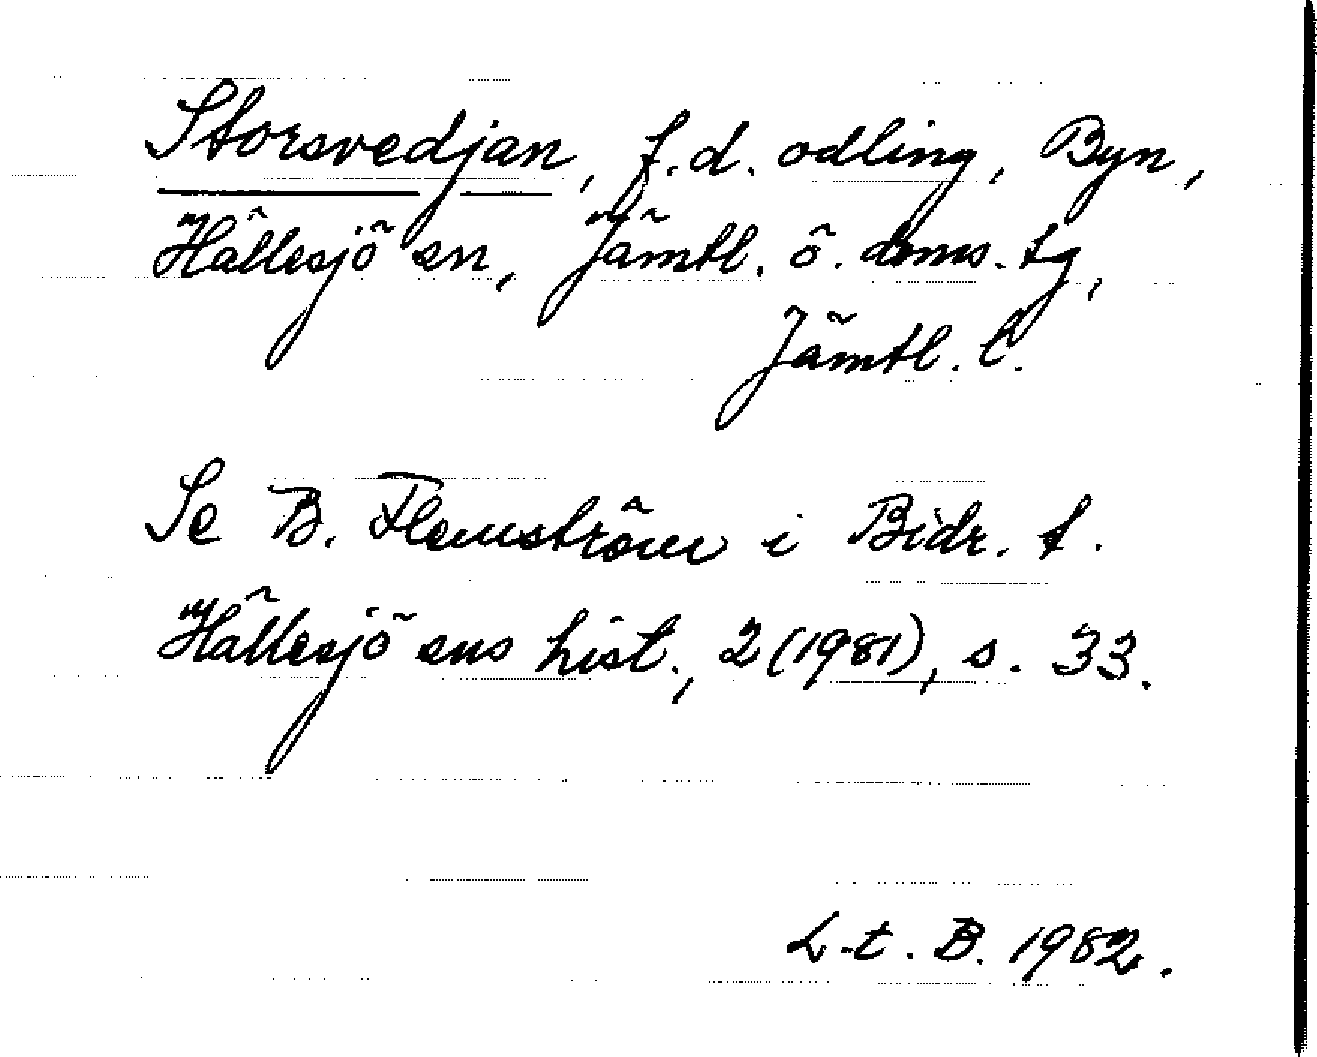 Storsvedjan, f.d. odling, Byn,
Hällesjö sn, Jämtl. ö. doms. tg,
Jämtl. l.
Se B. Flemström i Bidr. t.
Hällesjö sns hist., 2 (1981), s. 33.
L-t. B. 1982.